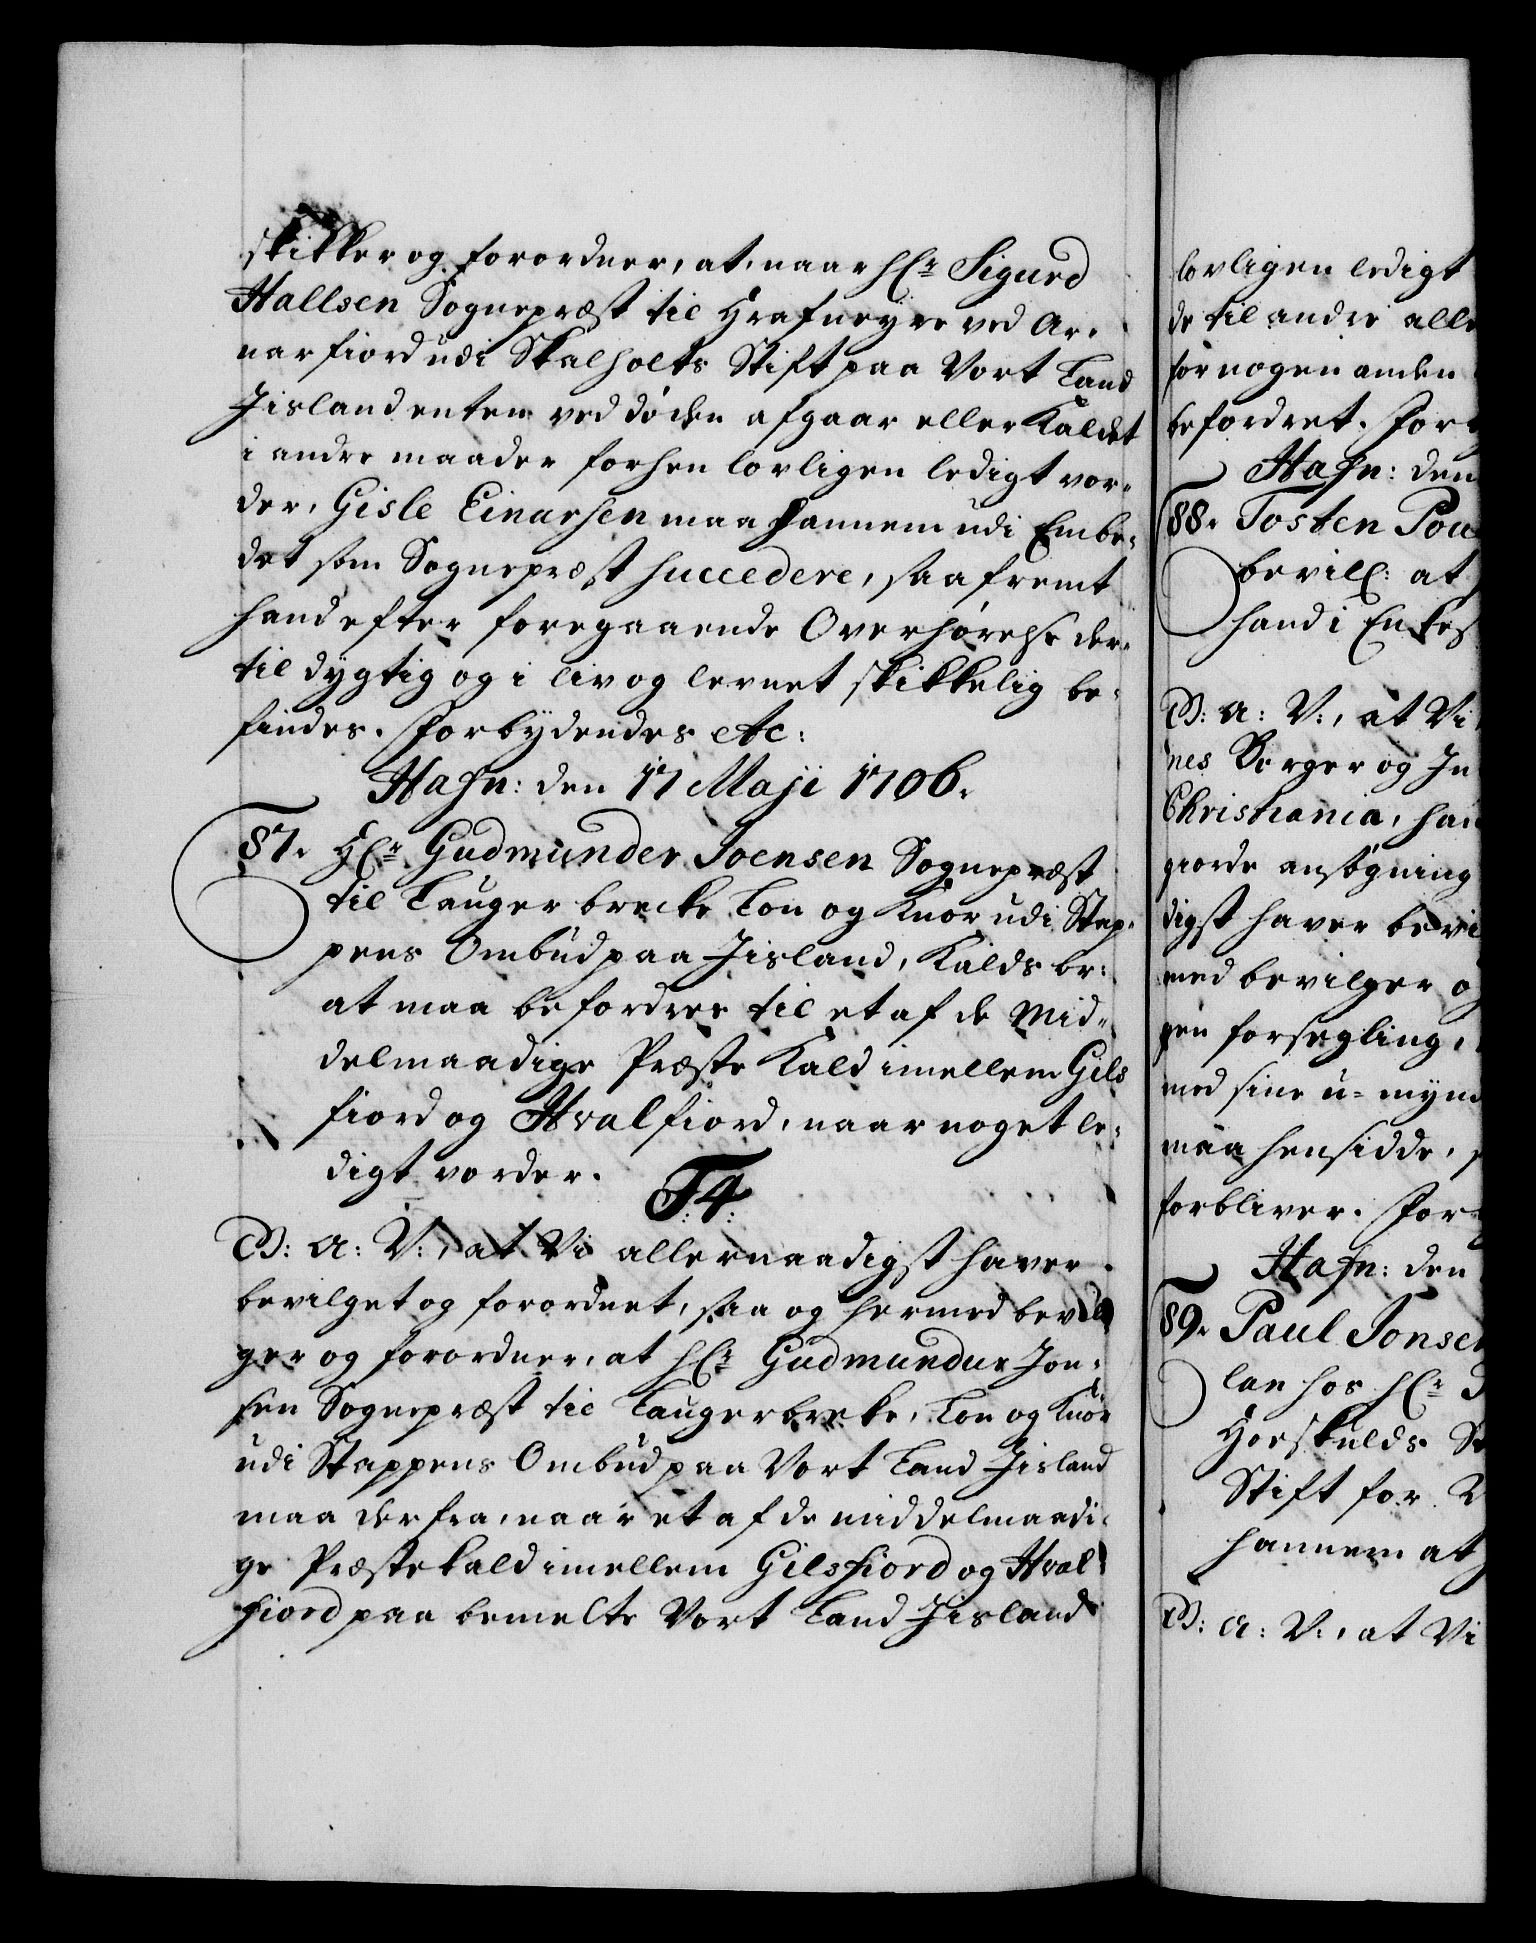 skikker og forordner, at, naar Hr Sigurd
Hallsen Sognepræst til Hrafneyre ved Ar-
narfiord udi Skalholts Stift paa Vort Land
Jisland enten ved døden afgaar eller Kaldet
i andre maader forhen lovligen ledigt vor-
der, Gisle Einarsen maa hannem udi Embe-
det som Sognepræst succedere, saafremt
hand efter foregaaende Overhørelse der-
til dygtig og i liv og levnet skikkelig be-
findes. Forbydendes etc:
Hafn: den 17 Maji 1706.
87. Hr Gudmunder Joensen Sognepræst
til Lauger brecke Lon og Knor udi Stap-
pens Ombud paa Jisland, Kalds br:
at maa befordres til et af de Mid-
delmaadige Præste Kald imellem Gils
fiord og Hvalfiord, naar noget le-
digt vorder.
F4.
G: A: V:, at Vi allernaadigst haver
bevilget og forordnet, saa og hermed bevil
ger og forordner, at Hr Gudmundur Jon-
sen Sognepræst til Laugerbrecke, Lon og Knor
udi Stappens Ombud paa Vort Land Jisland
maa derfra, naar et af de middelmaadi-
ge Præstekald imellem Gilsfiord og Hval
fiord paa bemelte Vort Land Jisland
lovligen ledigt
de til andre alle
før nogen anden
befordret. For
Hafn: den
88. Tosten Pou
bevilg: at
hand i Enkes
G: A: V:, at Vi
nes Borger og In
Christiania, han
giorde ansøgning
digst haver bevi
med bevilger og
gen forsegling,
med sine u-mynd
maa hensidde,
forbliver. For
Hafn: den
89. Paul Jonsen
lan hos Hr
Horskulds St
Stift for
hannem at
G: A: V:, at Vi